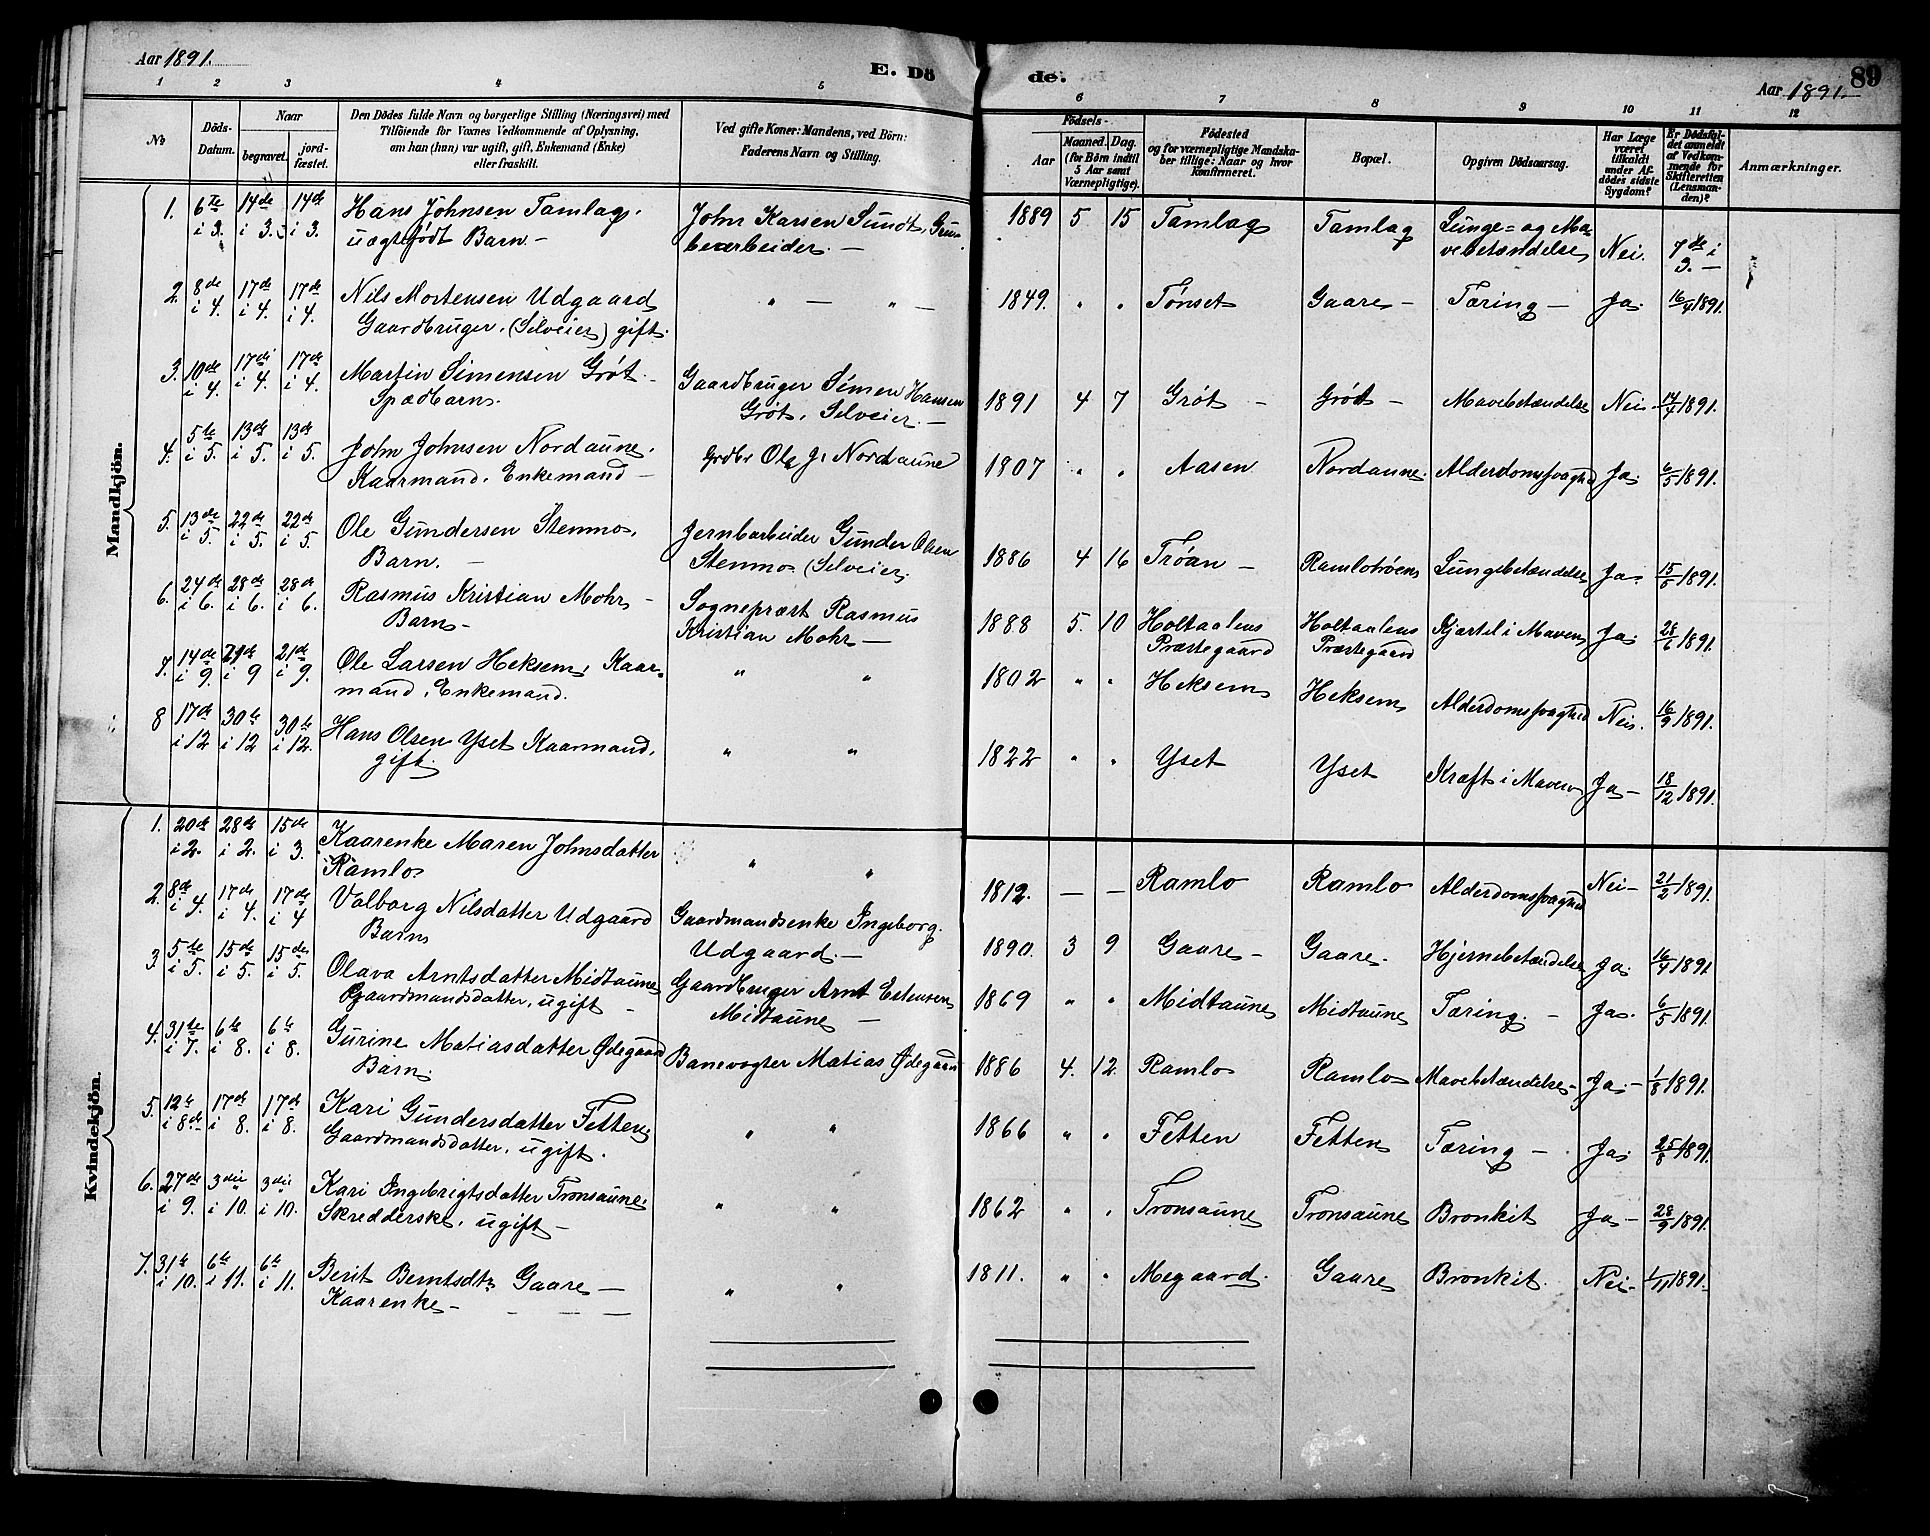 Aar 1891.
E. Dö
de.
89
Aar 1891.
1 2 3 4 5 6 7 8 9 10 11 12
No
Döds-Datum.
Naar
begravet.
jord-fæstet.
Den Dödes fulde Navn og borgerlige Stilling (Næringsvei) med
Tilföiende for Voxnes Vedkommende af Oplysning,
om han (hun) var ugift, gift, Enkemand (Enke)
eller fraskilt.
Ved gifte Koner: Mandens, ved Börn:
Faderens Navn og Stilling.
Födsels-
Aar
Maaned. Dag.
(for Börn indtil
5 Aar samt
Værnepligtige).
Födested
og for værnepligtige Mandska-
ber tillige: Naar og hvor
Konfirmeret.
Bopæl.
Opgiven Dödsaarsag.
Har Læge
været
tilkaldt
under Af-
dödes sidste
Sygdom?
Er Dödsfal-
det anmeldt
af Vedkom-
mende for
Skifteretten
(Lensman-
den)?
Anmærkninger.
Mandkjön.
1. 6te 14de 14de Hans Johnsen Tamlag, John Larsen Sundt, 1889 5 15 Tamlag Tamlag Lunge= og Ma-
i 3. i 3. i 3. uægtefödt Barn. — vebetændelse Nei. 7de i 3. —
2. 8de 17de 17de Nils Mortensen Udgaard " — " — 1849. " " Tønset Gaare — Tæring — Ja. 16/4 1891.
i 4. i 4. i 4. Gaardbruger. (Selveier) gift.
3. 10de 17de 17de Martin Simensen Grøt. Gaardbruger Simen Hansen 1891 4 7 Grøt — Grøt — Mavebetændelse Nei. 14/4 1891.
i 4. i 4. i 4. Spædbarn. Grøt, Selveier. —
4. 5te 13de 13de John Johnsen Nordaune. Grdbr Ola J. Nordaune 1807 " " Aasen Nordaune. Alderdomssvaghed Ja. 6/5 1891.
i 5. i 5. i 5. Kaarmand, Enkemand —
5. 13de 22de 22de Ole Gundersen Stenmo, Jernbarbeider Gunder Olsen 1886 4 16 Trøan — Ramlotrøen Lungebetændelse Ja. 15/5 1891.
i 5. i 5. i 5. Barn. — Stenmo (Selveier.
6. 24de 28de 28de Rasmus Kristian Mohr — Sognepræst Rasmus 1888 5. 10 Holtaalens Holtaalens Kjærtel i Maven Ja. 28/6 1891.
i 6. i 6. i 6. Barn — Kristian Mohr — Præstegaard Præstegaard
7. 14de 21de 21de Ole Larsen Heksem, Kaar- " " 1802 " " Heksem Heksem Alderdomssvaghed Nei. 16/9 1891.
i 9. i 9 i 9. mand, Enkemand.
8 17de 30te 30te Hans Olsen Yset Kaarmand, " " 1822 " " Yset Yset Kræft i Maven Ja — 18/12 1891.
i 12 i 12 i 12. gift.
Kvindekjön.
1. 20de 28de 15de Kaarenke Maren Johnsdatter " " 1812. — — Ramlo Ramlo Alderdomssvaghed Nei — 21/2 1891.
i 2. i 2. i 3. Ramlo
2. 8de 17de 17de Valborg Nilsdatter Udgaard Gaardmandsenke Ingeborg. 1890. 3 9 Gaare — Gaare. Hjernebetændelse Ja. 16/4 1891
i 4. i 4. i 4 Barn Udgaard. —
3 5te 15de 15de Olava Arntsdatter Midtaune Gaardbruger Arnt Estensen 1869 " " Midtaune Midtaune Tæring. — Ja. 6/5 1891.
i 5. i 5. i 5. Gaardmandsdatter, ugift — Midtaune —
4. 31te 6te 6te Gurine Matiasdatter Ødegaard Banevogter Matias Ødegaard 1886 4. 12. Ramlo Ramlo Mavebetændelse — Ja — 1/8 1891.
i 7. i 8. i 8. Barn.
5. 12te 17de 17de Kari Gundersdatter Fetten " " 1866 " " Fetten Fetten Tæring — Ja. 25/8 1891.
i 8de i 8. i 8. Gaardmandsdatter, ugift.
6. 27de 3die 3die Kari Ingebrigtsdatter Tronsaune. " " 1862 " " Tronsaune Tronsaune Bronkit Ja — 28/9 1891.
i 9. i 10. i 10. Skredderske, ugift —
7. 31te 6te 6te Berit Berntsdtr Gaare — " " 1811. " " Megaard. Gaare Bronkit. Nei — 1/11 1891.
i 10. i 11. i 11. Kaarenke —